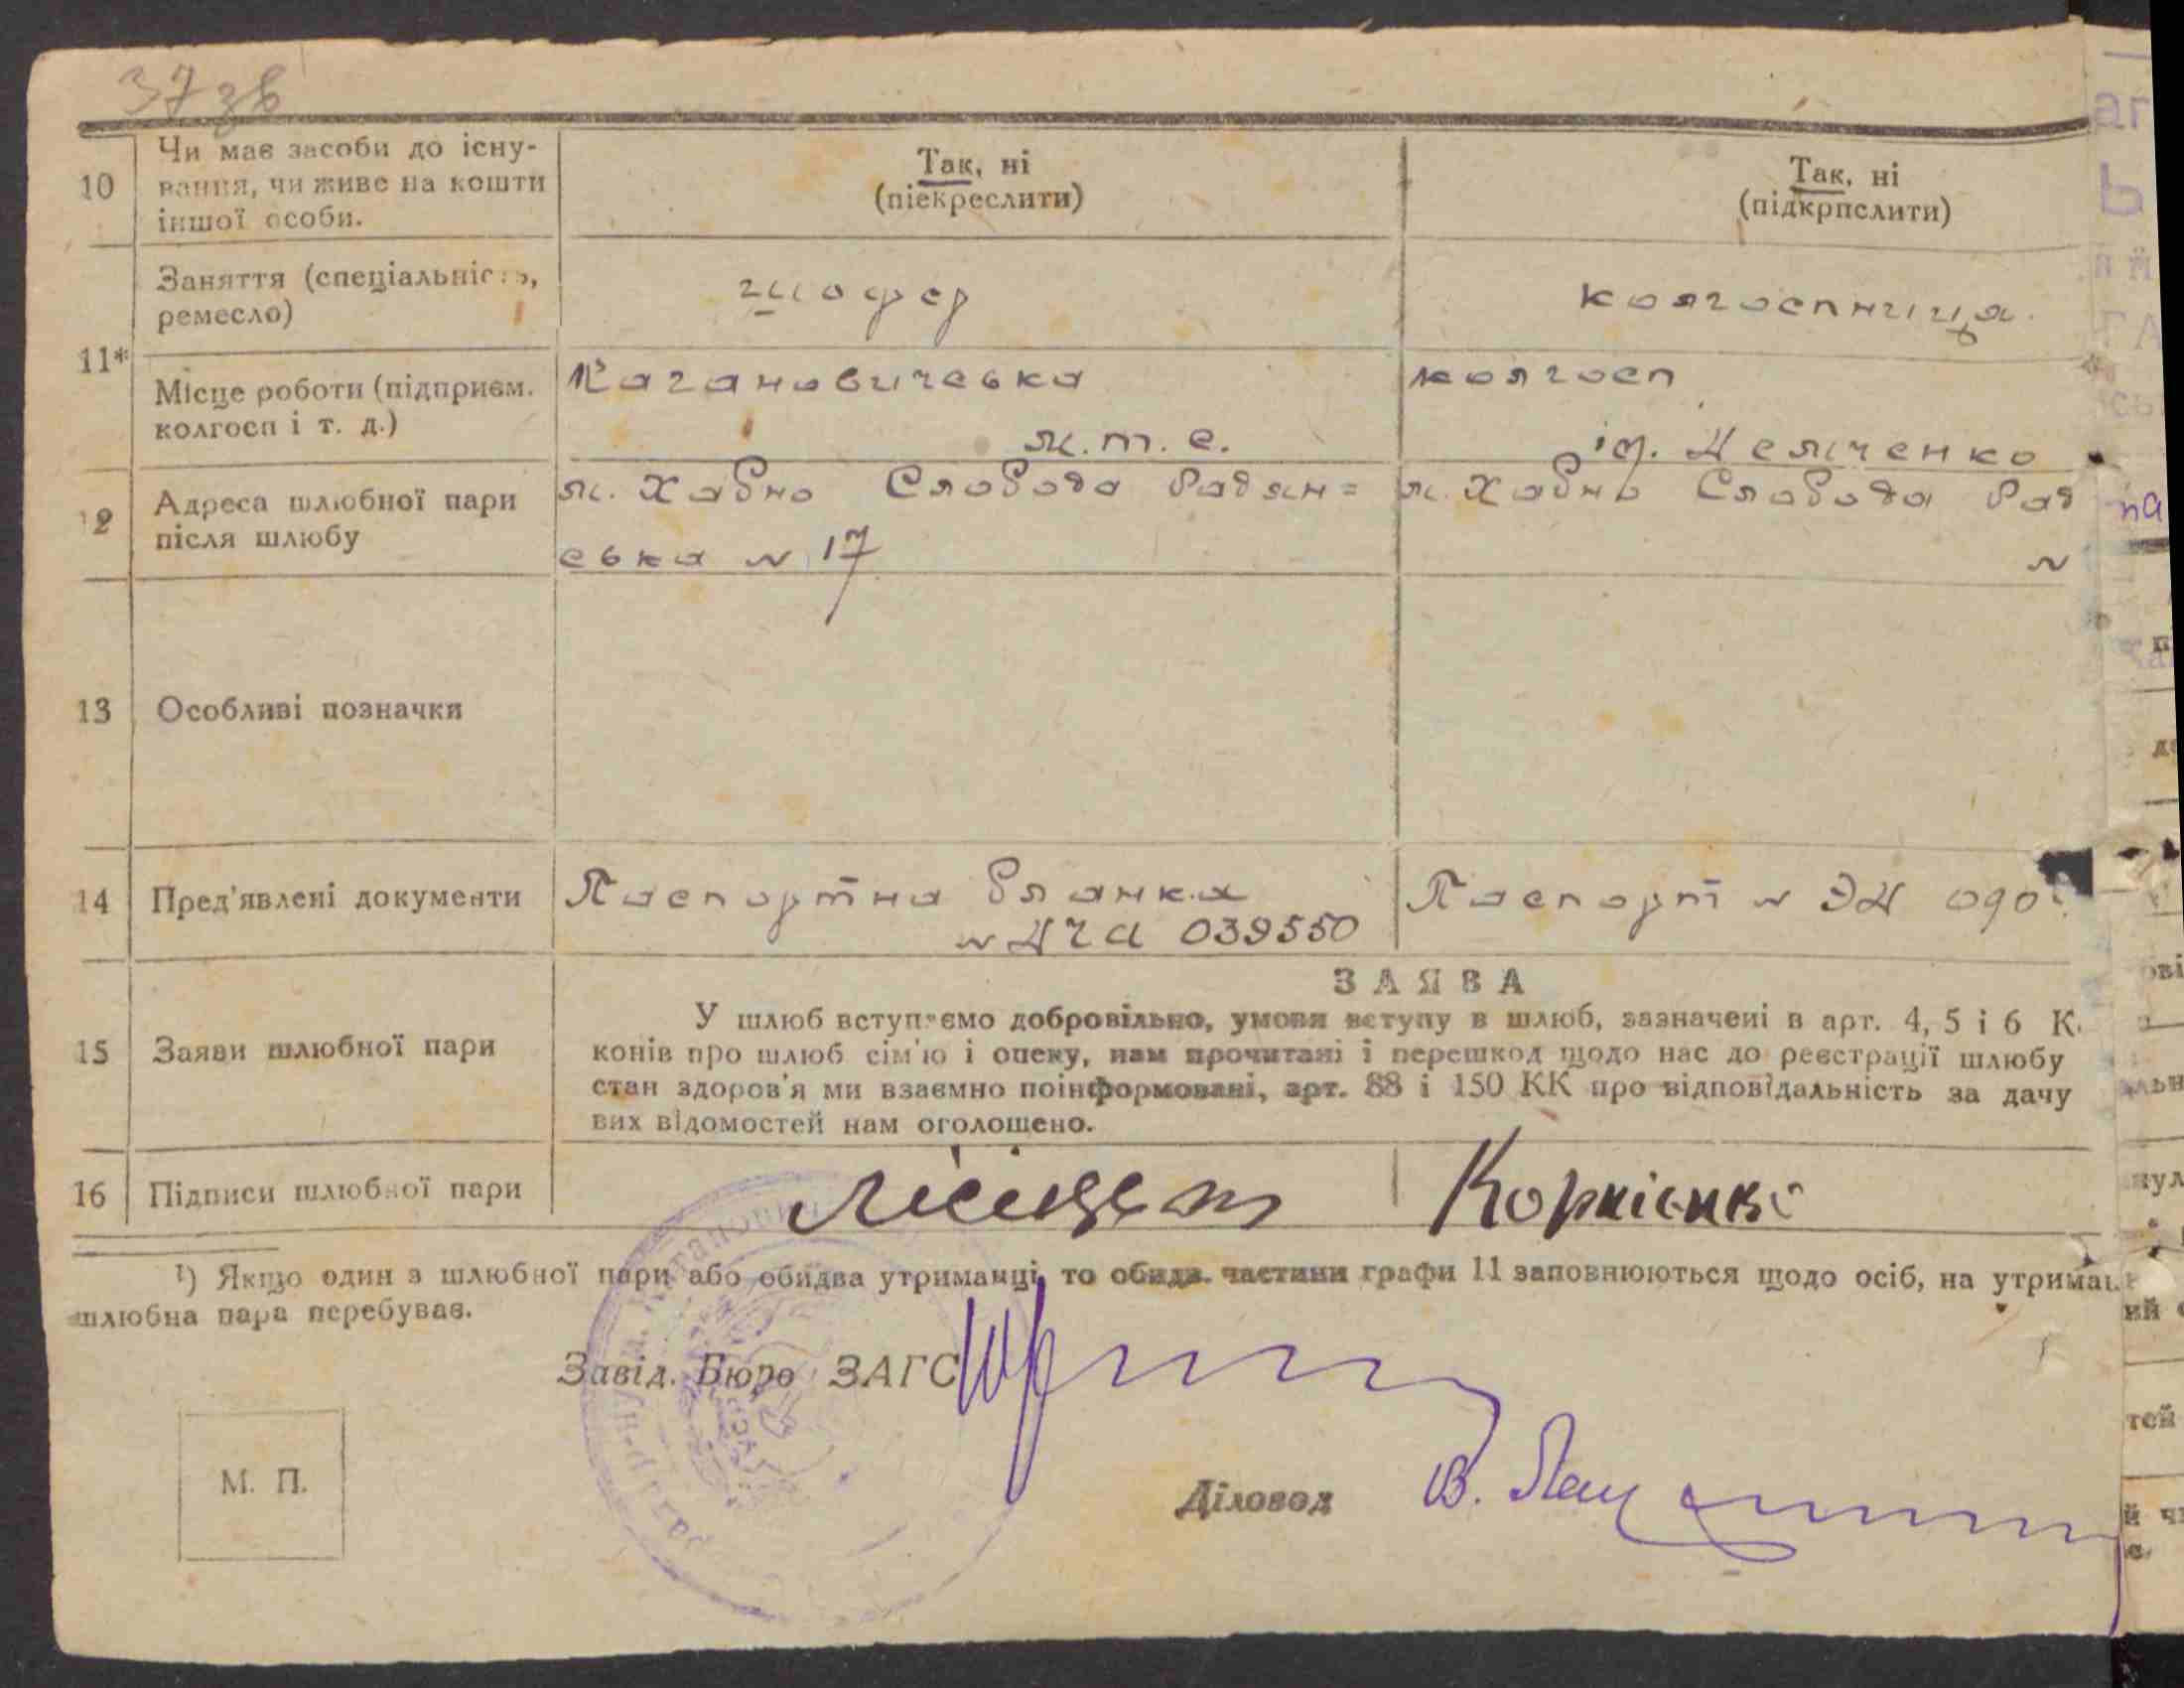 37 зв
10 Чи має засоби до існу-
вання, чи живе на кошти
іншої особи.
Так, ні
(піекреслити)
Так, ні
(підкрпслити)
11* Заняття (спеціальність,
ремесло)
шофер
колгоспниця.
Місце роботи (підприєм.
колгосп і т. д.)
Кагановичська
м.т.с.
колгосп
ім.
12 Адреса шлюбної пари
після шлюбу
м. Хабно Слобода Радян=
ська № 17
м. Хабно Слобода Рад
№
13 Особливі позначки
14 Пред'явлені документи
Паспортна бланка
039550
Паспорт №
15 Заяви шлюбної пари
ЗАЯВА
У шлюб вступаємо добровільно, умови вступу в шлюб, зазначені в арт. 4, 5 і 6 К.
конів про шлюб сім'ю і опеку, нам прочитані і перешкод щодо нас до реєстрації шлюбу
стан здоров'я ми взаємно поінформовані, арт. 88 і 150 КК про відповідальність за дачу
вих відомостей нам оголошено.
16 Підписи шлюбної пари
Корнієнко
¹) Якщо один з шлюбної пари або обидва утриманці, то обидв. частини графи 11 заповнюються щодо осіб, на утриман
шлюбна пара перебуває.
Завід. Бюро ЗАГС
М. П.
Діловод В.